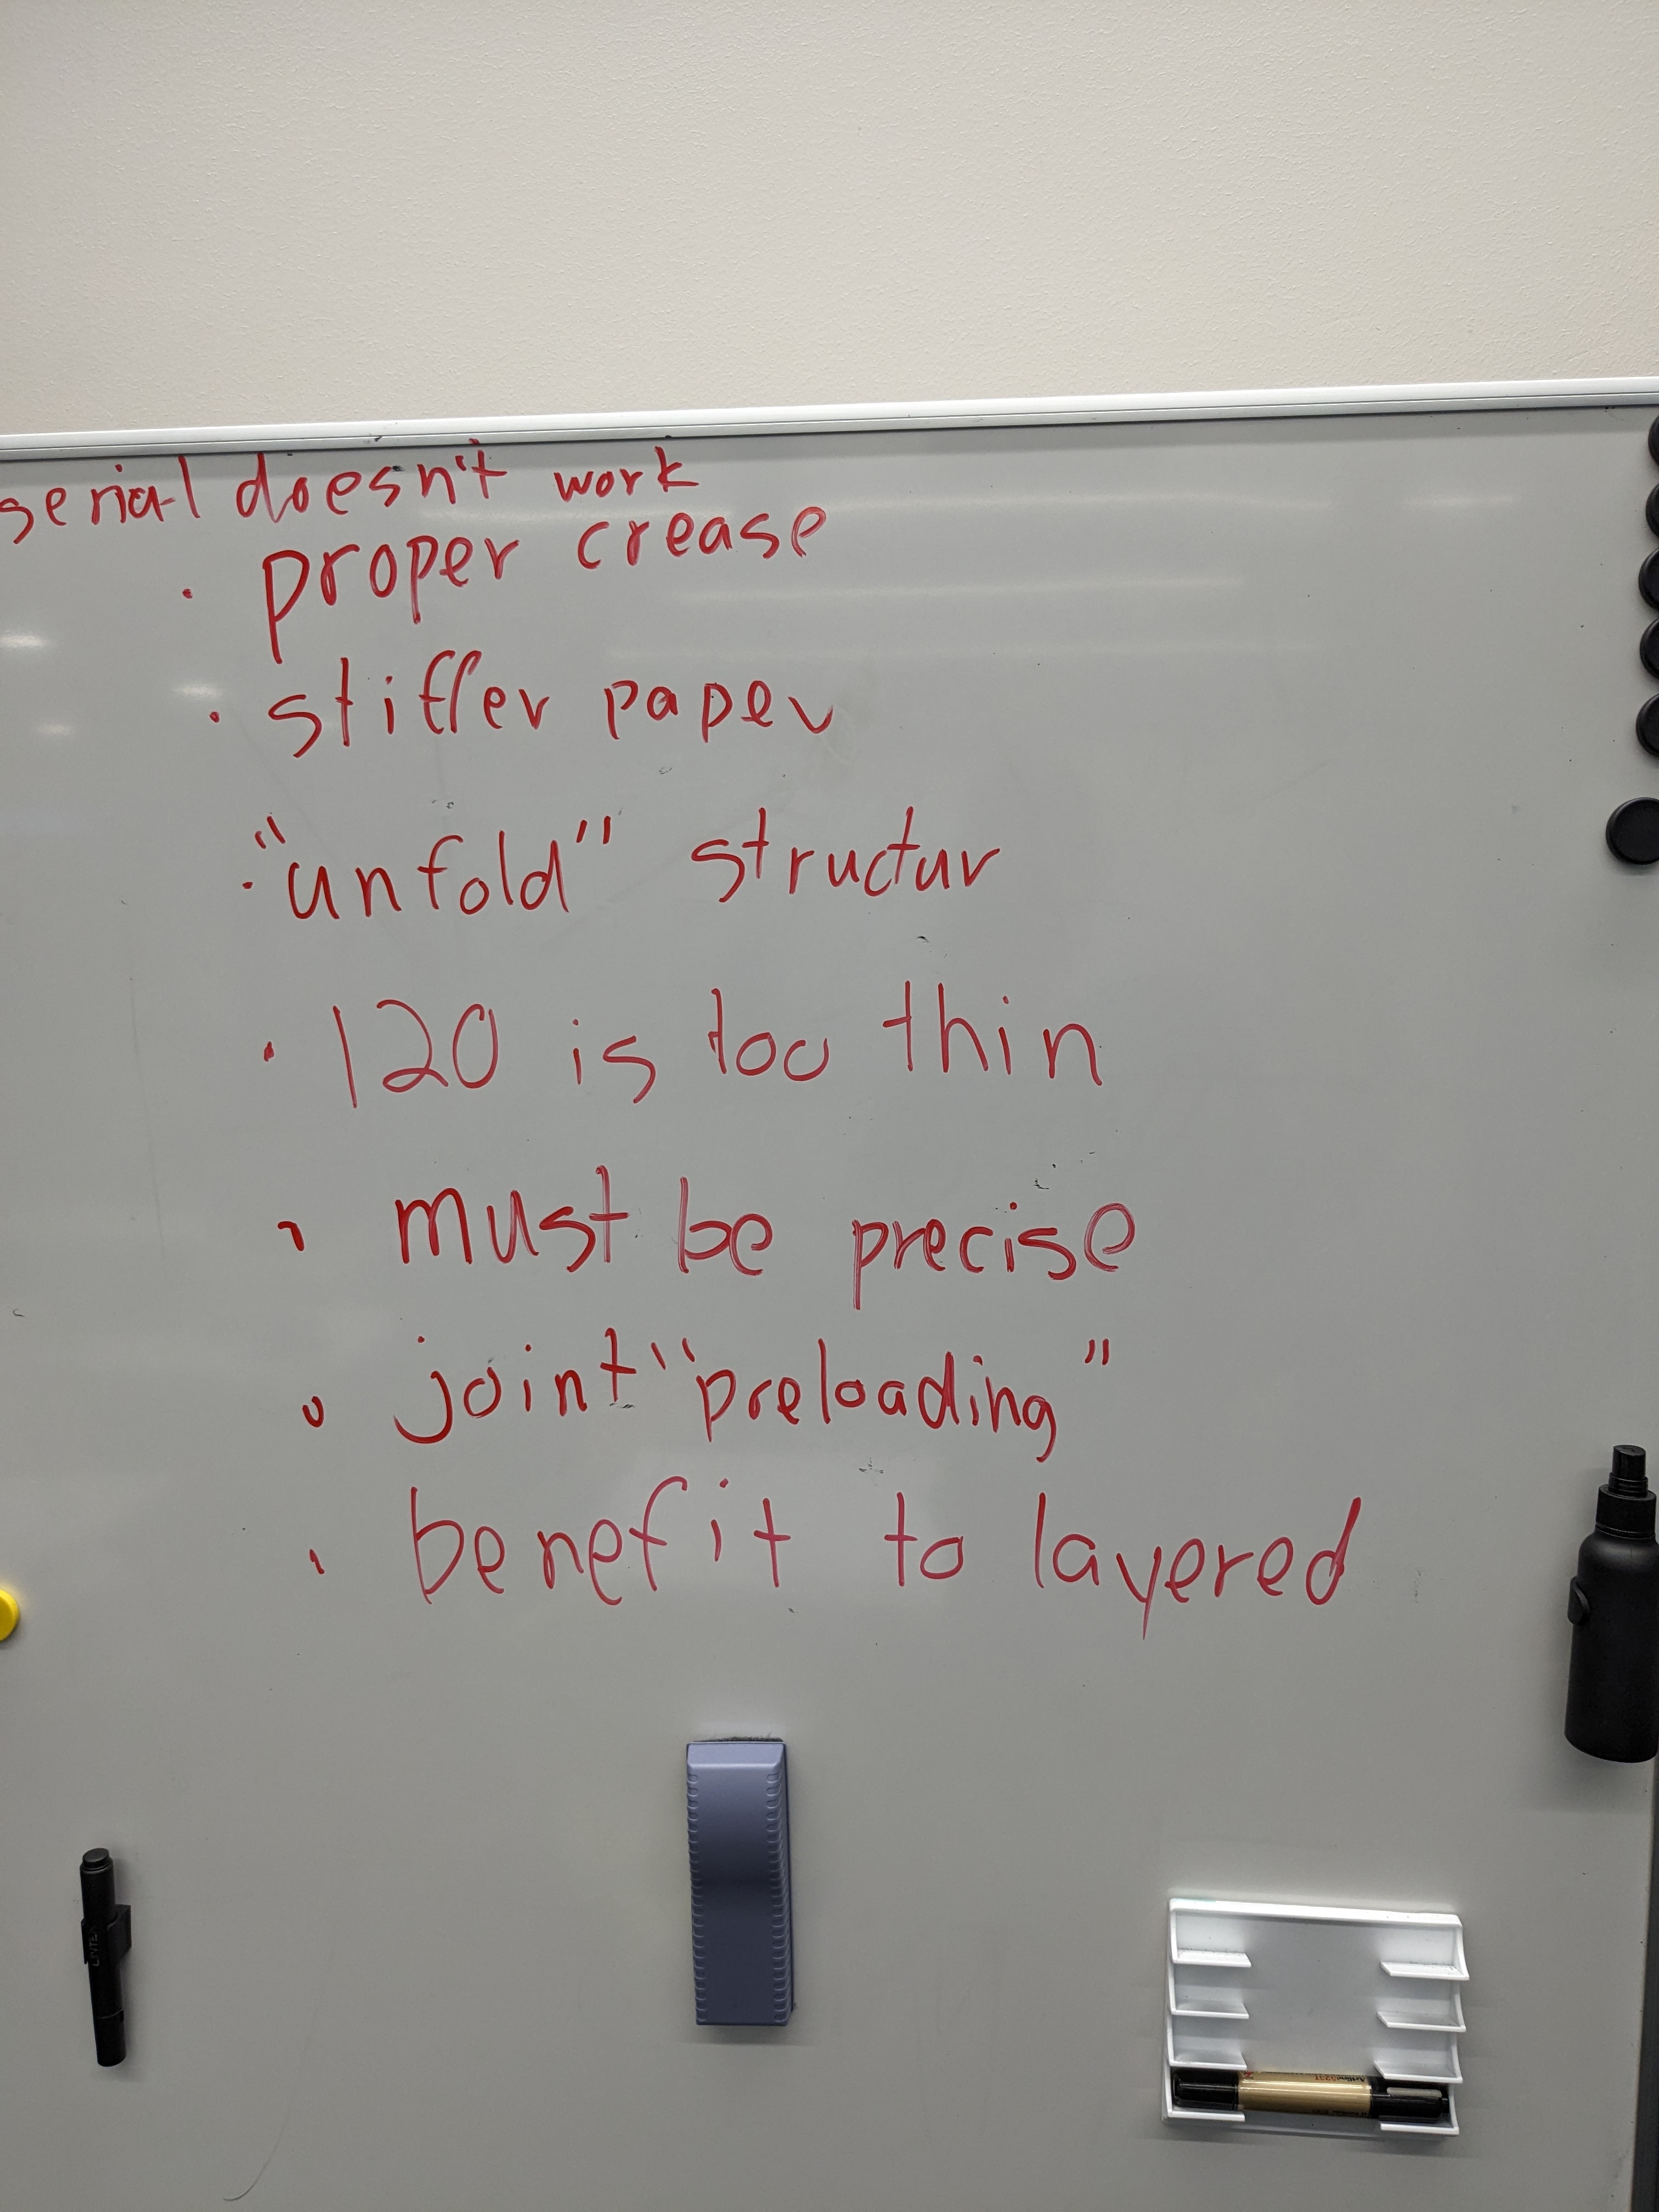 serial doesn't work
· proper crease
· stiffer paper
· "unfold" structur
· 120 is too thin
· must be precise
· joint "preloading"
· benefit to layered